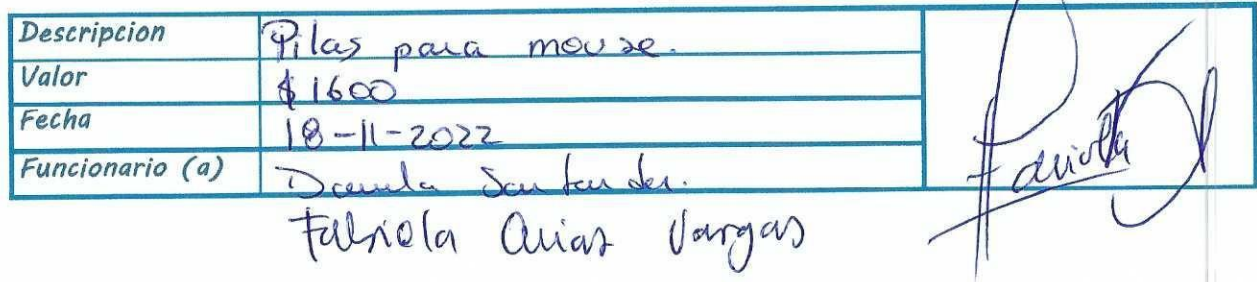 Descripcion Pilas para mouse.
Valor $1600
Fecha 18-11-2022
Funcionario (a) Daniela Santander.
Fabiola Arias Vargas
Fabiola